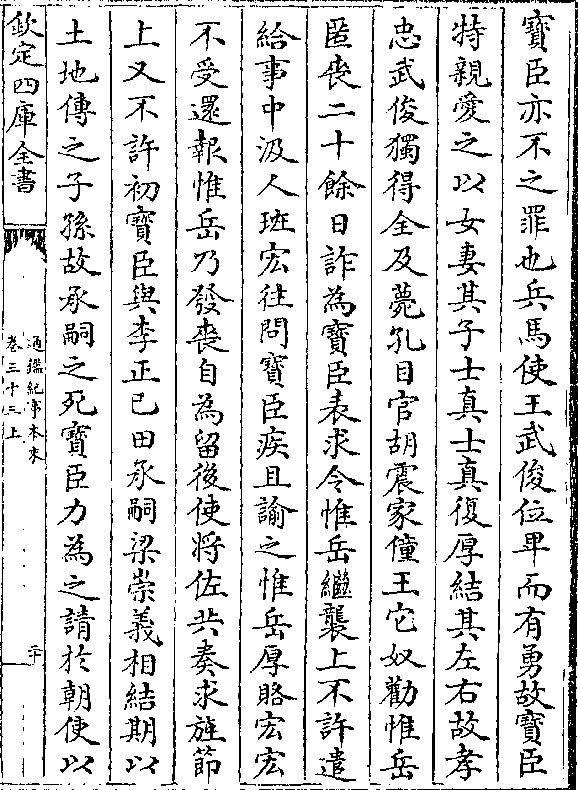 寳臣亦不之罪也兵馬使王武俊位卑而有勇故寳臣
特親愛之以女妻其子士真士真復厚結其左右故孝
忠武俊獨得全及薨孔目官胡震家僮王它奴勸惟岳
匿喪二十餘日詐為寳臣表求令惟岳繼襲上不許遣
給事中汲人班宏往問寳臣疾且諭之惟岳厚賂宏宏
不受還報惟岳乃發喪自為留後使將佐共奏求旌節
上又不許初寳臣與李正已田承嗣梁崇義相結期以
土地傳之子孫故承嗣之死寳臣力為之請於朝使以
欽定四庫全書
通鑑紀事本末
卷三十三上
二十